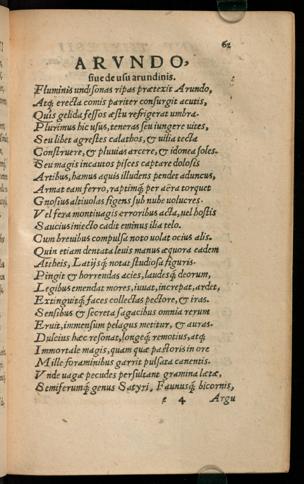 62
ARVNDO,
siue de usu arundinis.
Fluminis undisonas ripas prætexit Arundo,
Atq; erecta comis pariter consurgit acutis,
Quis gelida fessos æstu refrigerat umbra.
Plurimus hic usus, teneras seu iungere uites,
Seu libet agrestes calathos, & uilia tecta
Construere, & pluuias arcere, & idonea soles.
Seu magis incautos pisces captare dolosis
Artibus, hamus aquis illudens pendet aduncus,
Armat eam ferro, raptimq; per aëra torquet
Gnosius altiuolas figens sub nube uolucres.
Vel fera montiuagis erroribus acta, uel hostis
Saucius iniecto cadit eminus ilia telo.
Cum breuibus compulsa noto uolat ocius alis.
Quin etiam dentata leuis manus æquora eadem
Attheis, Latijsq; notat studiosa figuris.
Pingit & horrendas acies, laudesq; deorum,
Legibus emendat mores, iuuat, increpat, ardet,
Extinguitq; faces collectas pectore, & iras.
Sensibus & secreta sagacibus omnia rerum
Eruit, immensum pelagus metitur, & auras.
Dulcius hæc resonat, longeq; remotius, atq;
Immortale magis, quam quæ pastoris in ore
Mille foraminibus garrit pulsata canentis.
Vnde uagæ pecudes persultant gramina lætæ,
Semiferumq; genus Satyri, Faunusq; bicornis,
e 4 Argu